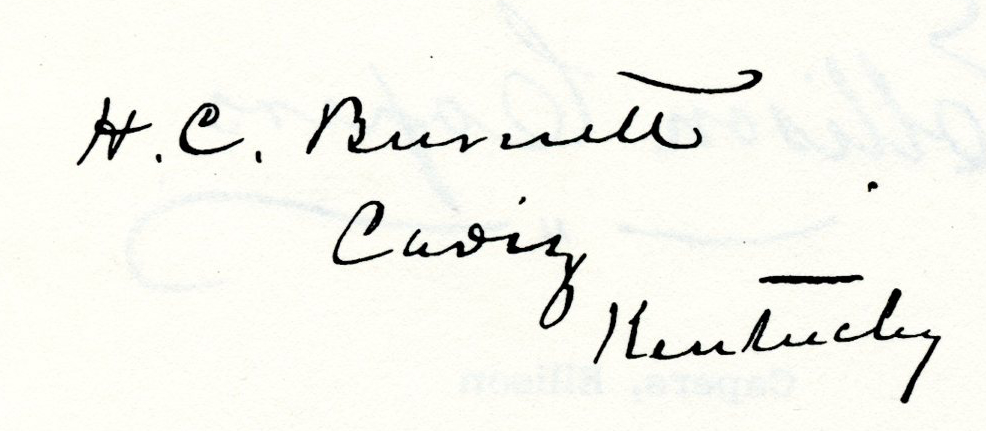 H. C. Burnett
Cadiz
Kentucky